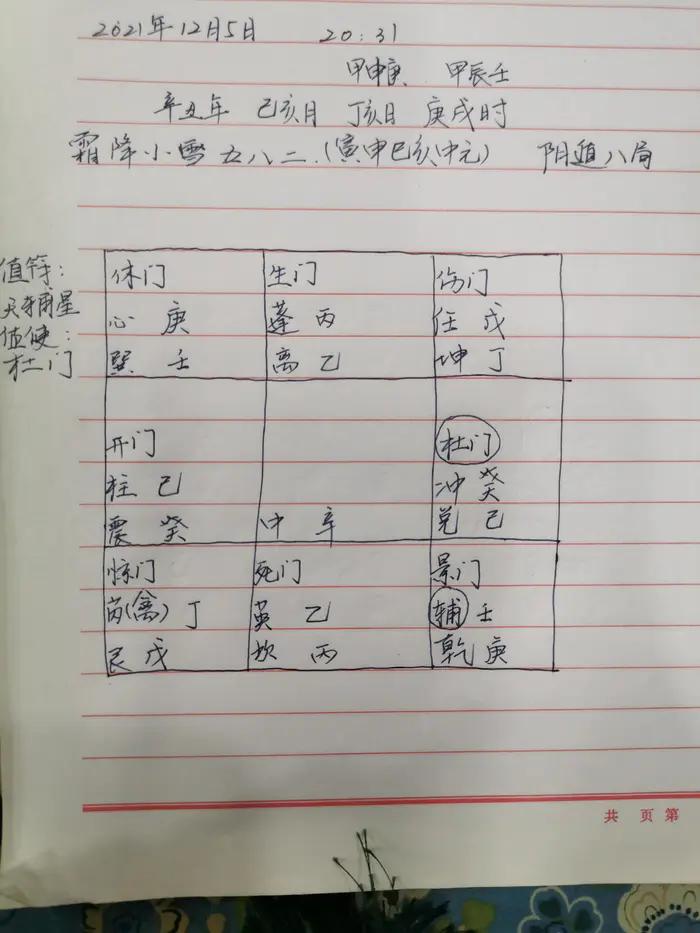 2021年12月5日 20:31
甲申庚 甲辰壬
辛丑年 己亥月 丁亥日 庚戌时
霜降小雪五八二.(寅申巳亥中元) 阴遁八局
值符:
天辅星
值使:
杜门
休门 生门 伤门
心 庚 蓬 丙 任 戊
巽 壬 离 乙 坤 丁
开门 杜门
柱 己 冲 癸
震 癸 中 辛 兑 己
惊门 死门 景门
芮(禽) 丁 英 乙 辅 壬
艮 戊 坎 丙 乾 庚
共 页 第